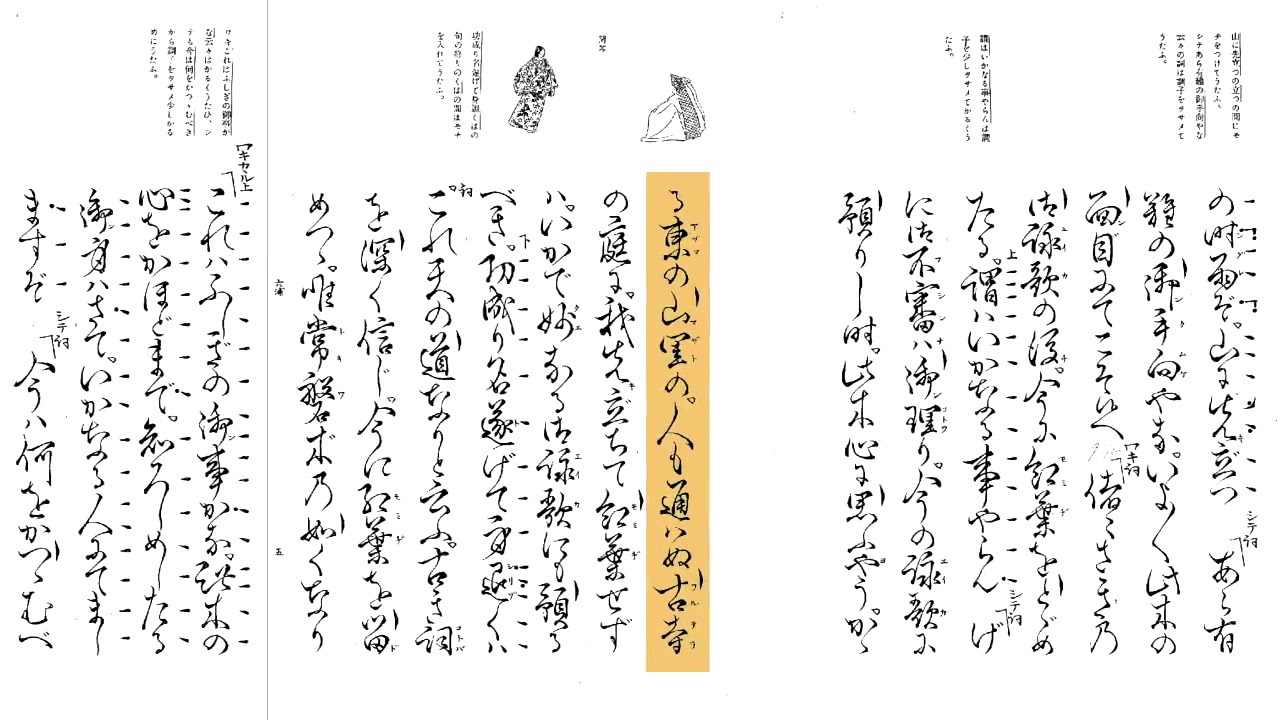 山に先立つの立つの間にモ
チをつけてうたふ。
シテあら有難の御手向やな
云々の詞は調子をヲサメて
うたふ。
の時雨ぞ。山に先立つ シテ詞 あら有
難の御手向やな。いよ〳〵此木の
面目にてこそ候へ ワキ詞 偖〻さきの
御詠歌の後。今に紅葉をとゞめ
たる。謂ハいかなる事やらん シテ詞 げ
に御不審ハ御理り。今の詠歌に
預りし時。此木心に思ふやう。かゝ
謂はいかなる事やらんは調
子を少しヲサメてかるくう
たふ。
る東の山里の。人も通ハぬ古寺
の庭に。我先立ちて紅葉せず
ハ。いかで妙なる御詠歌にも預る
べき。功成り名遂げて身退くハ
これ天の道なりと云ふ。古き詞
を深く信じ。今に紅葉を留
めつゝ。唯常磐木乃如くなり
功成り名遂げて身退くはの
句の終りのくはの間はモチ
を入れてうたふ。
六浦
五
ワキセル上
これハふしぎの御事かな。此木の
心をかほどまで。知ろしめしたる
御身ハさて。いかなる人にてまし
ますぞ シテ詞 今ハ何をかつゝむべ
ワキこれはふしぎの御事か
な云々はかるくうたひ、シ
テも今は何をかつゝむべき
から調子をヲサメ少しかる
めにうたふ。